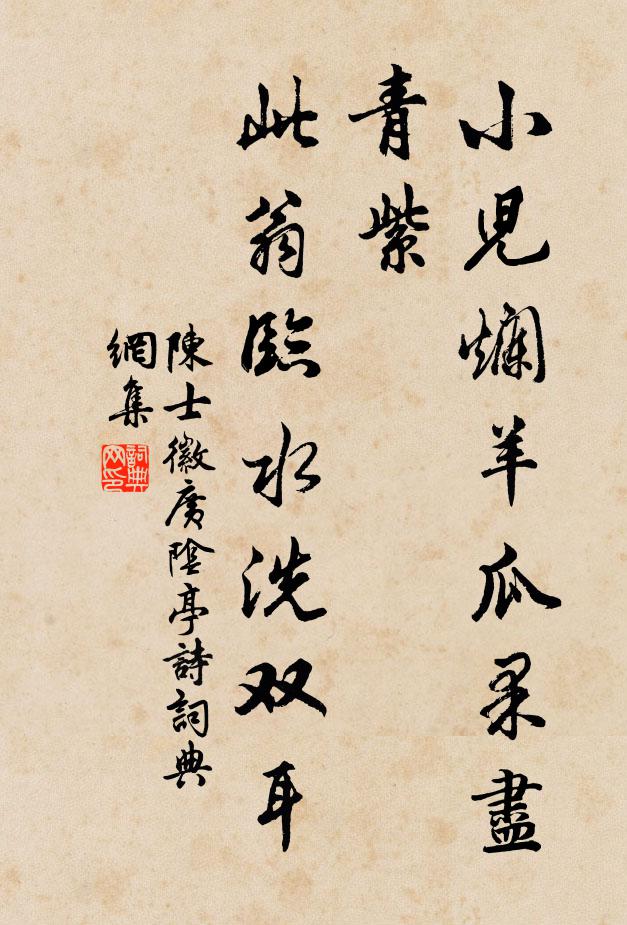 小児爛羊瓜果盡
青紫
此翁臨水洗双耳
陳士徽廣陰亭詩詞典
網集
詞典网印